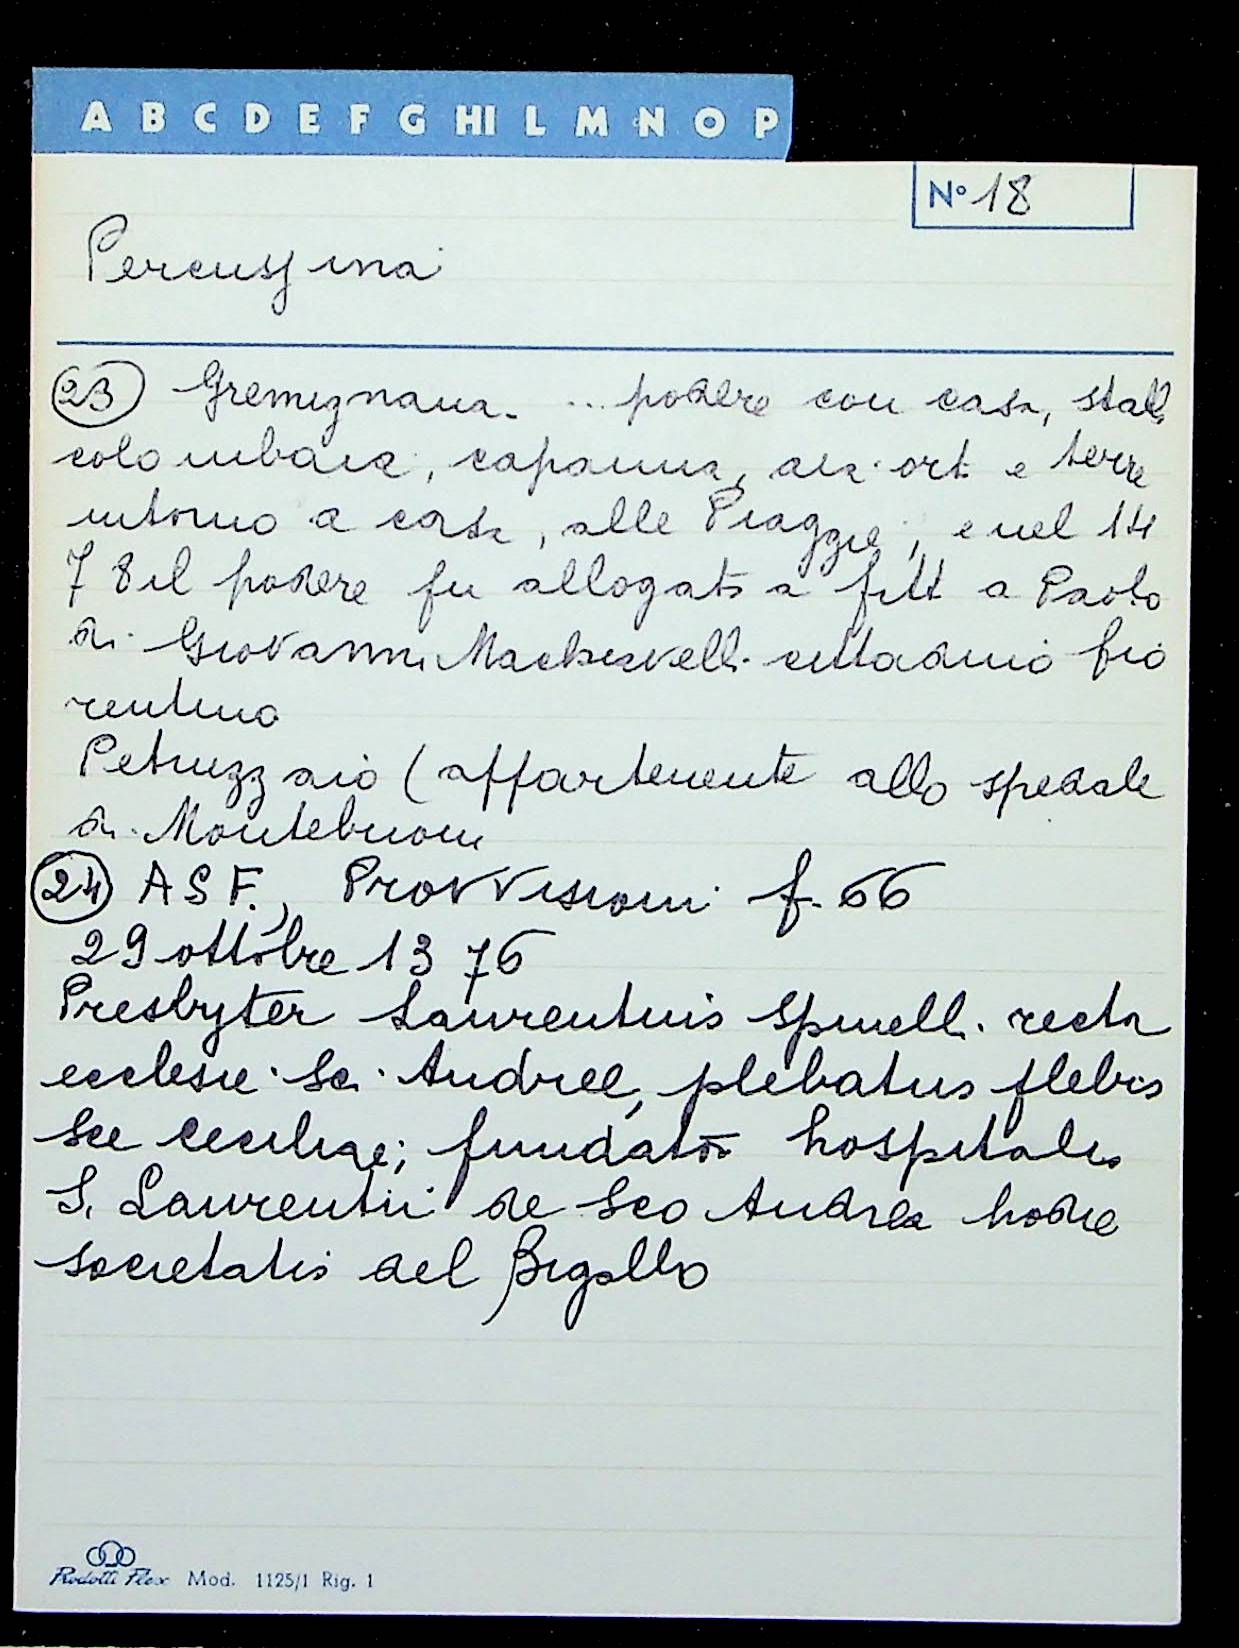 A B C D E F G HI L M N O P
N° 18
Percussina
23 Gremignana. ... podere con casa, stall.
colombaia, capanna, aia. orti e terre
intorno a casa, alle Piagge; e nel 14
78 il podere fu allogato a fitt a Paolo
di Giovanni Machiavelli. cittadino fio
rentino
Petruzzaio (appartenente allo spedale
di Montebuoni
24 ASF., Provvisioni f. 66
29 ottobre 1376
Presbyter Laurentius Spinelli. rector
ecclesie. Sci. Andree, plebatus plebis
Sce Ceciliae; fundator hospitalis
S. Laurentii de Sco Andrea hodie
societatis del Bigallo
Rodotti Flex Mod. 1125/1 Rig. 1